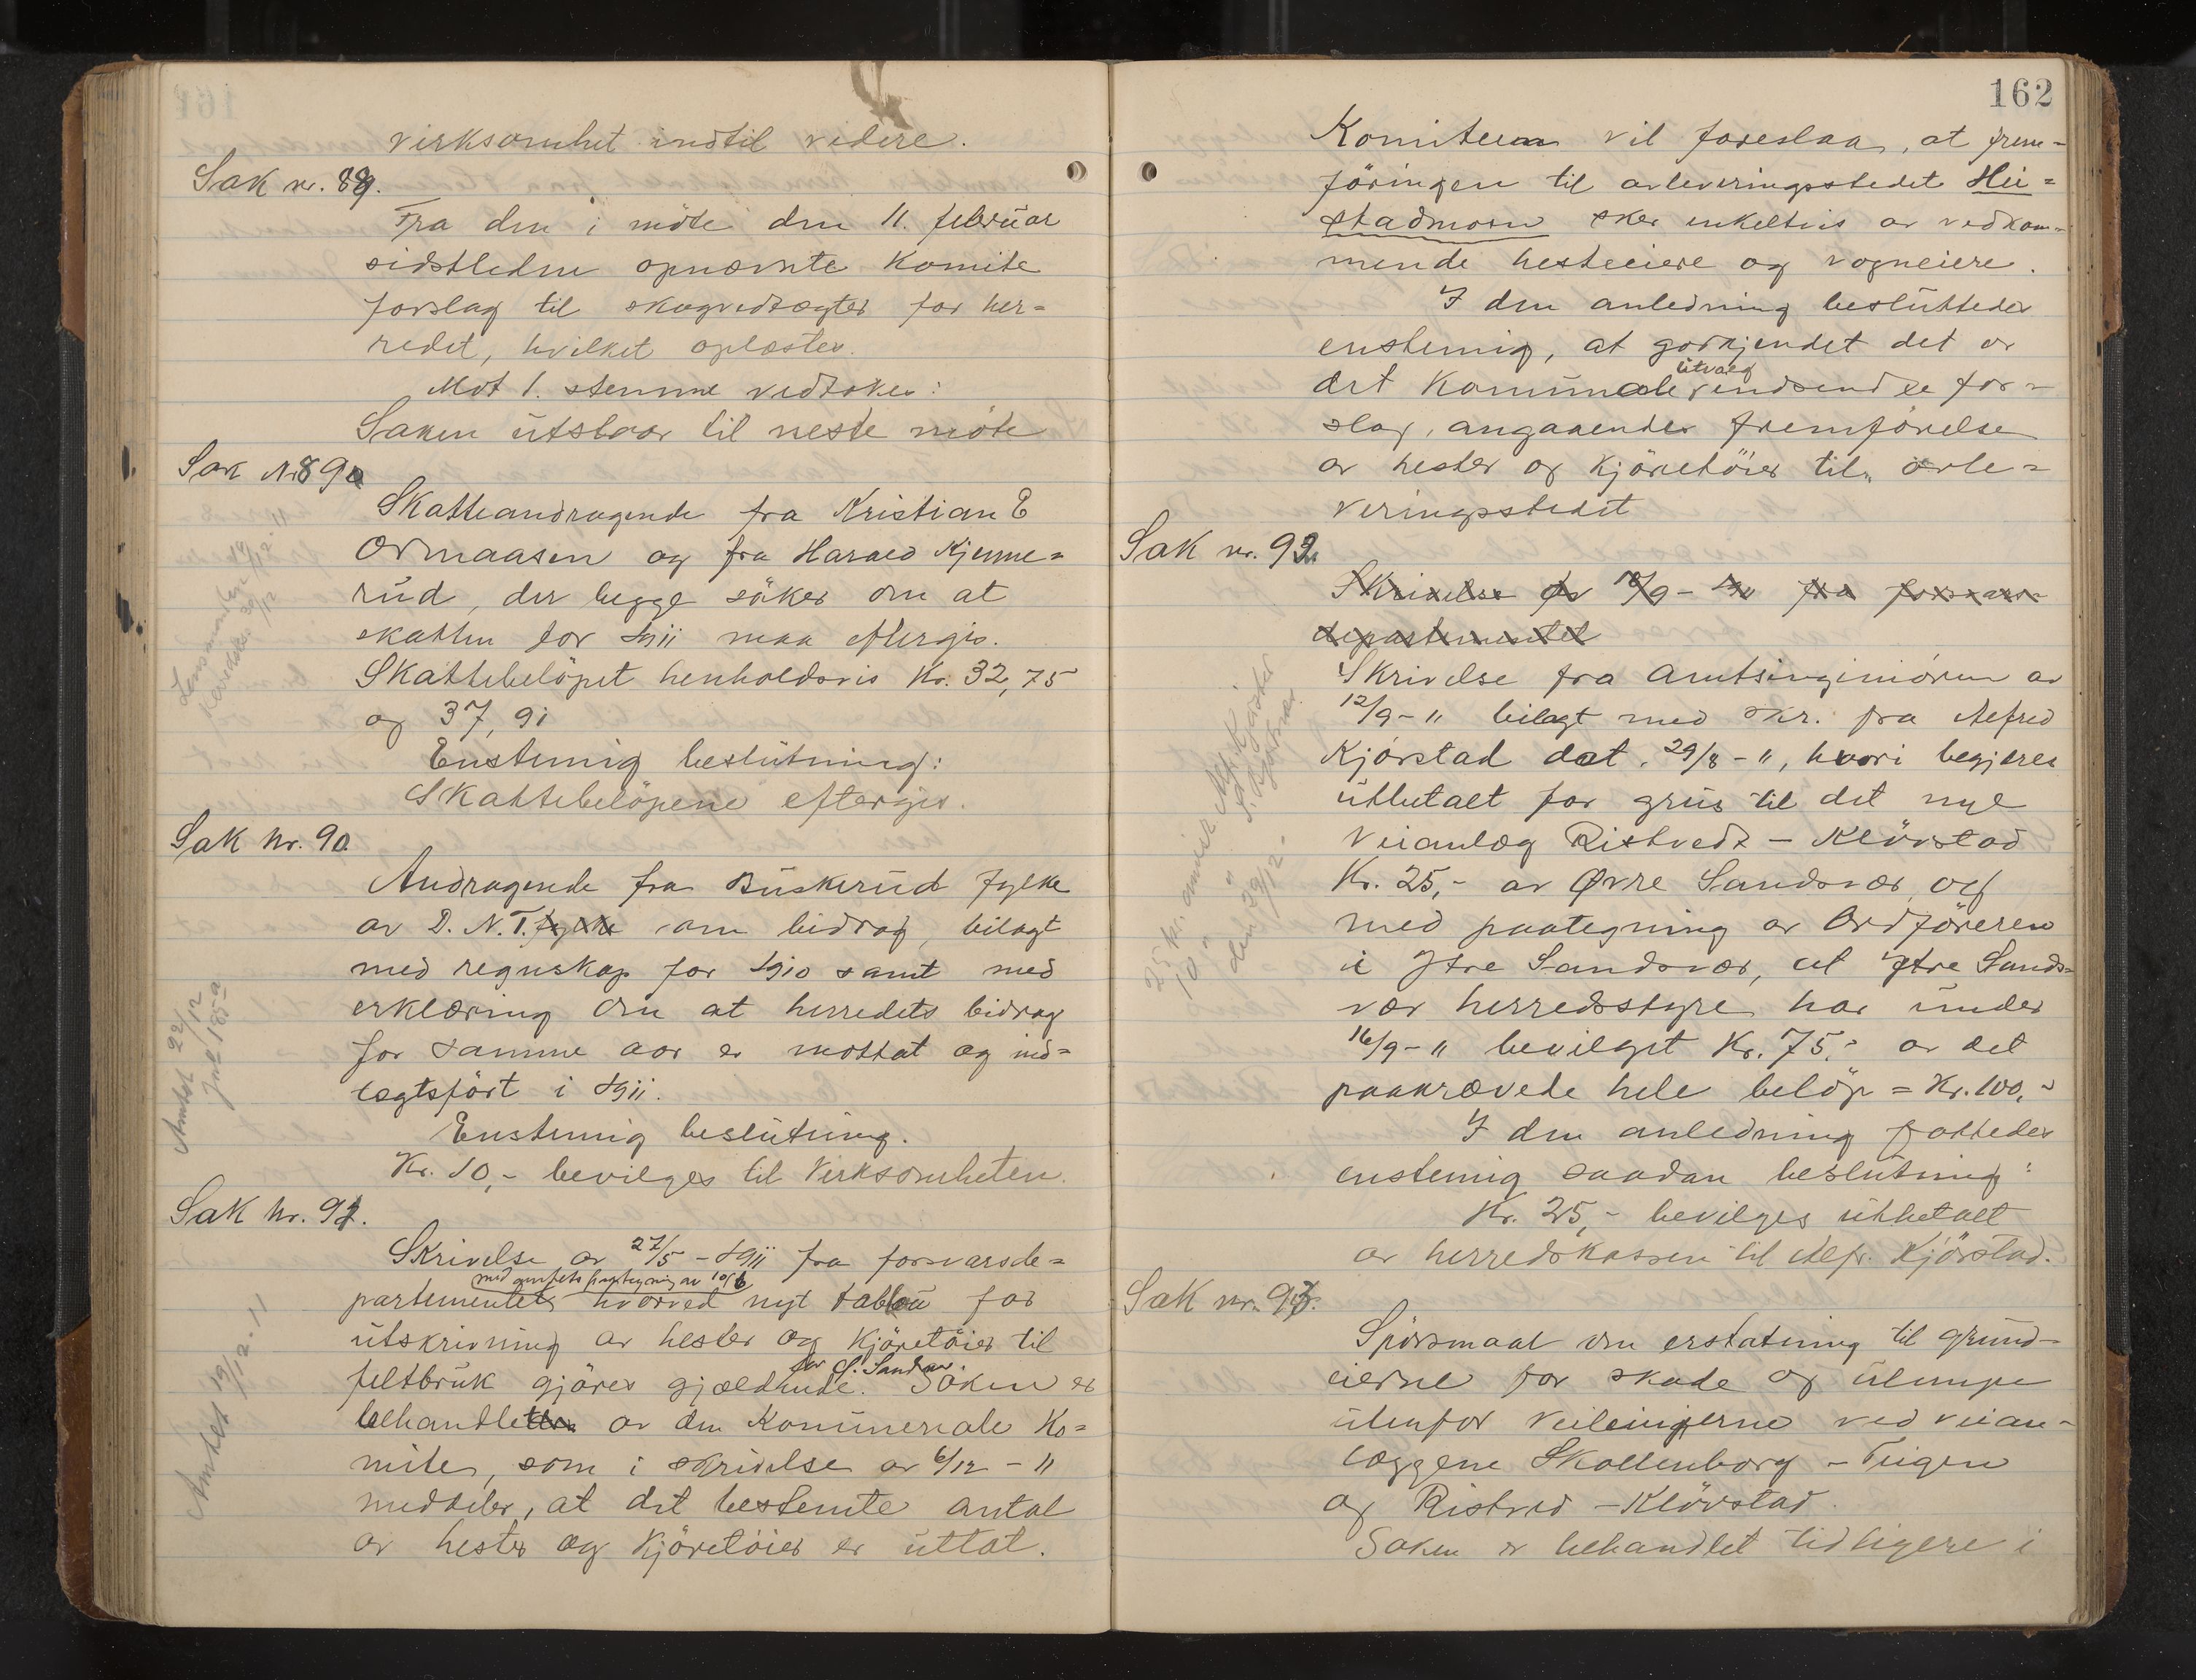 virksomhet indtil videre.
Sak nr. 88.
Fra den i möte den 11. februar
sidstleden opnævnte komite
forslag til skogvedtægter for her=
redet, hvilket oplæstes.
Mot 1. stemme vedtokes:
Saken utstaar til neste möte
Sak Nr 89
Skatteandragende fra Kristian E
Ormaasen og fra Harald Kjenne=
rud, der begge söker om at
skatten for 1911 maa eftergis.
Skattebelöpet henholdsvis Kr. 32,75
og 37,91
Enstemig beslutning:
Skattebelöpene eftergis.
Lensmanden 14/12 11
Kavrdal 30/12
Sak Nr. 90
Andragende fra Buskerud fylke
av D. N. T. fylke om bidrag, bilagt
med regnskap for 1910 samt med
erklæring om at herredets bidrag
for samme aar er mottat og ind=
tægtsfört i 1911.
Enstemig beslutning.
Kr. 10,- bevilges til Virksomheten.
Amtet 22/12
Sak Nr. 91.
Skrivelse av 27/5 - 1911 fra forsvarsde=
med amtets paategning av 10/6
partementet hvorved nyt tablau for
utskrivning av hester og Kjöretöier til
for S. Sandsv.
feltbruk gjöres gjældende. Saken er
behandlet av den Kommunale Ko=
mite, som i skrivelse av 6/12 - 11
meddeler, at det bestemte antal
av hester og Kjöretöier er uttat.
Amtet 19/12. 11
162
Komiteen vil foreslaa, at frem=
föringen til avleveringsstedet Hei=
stadmoen sker enkeltvis av vedkom=
mende hesteeiere og vogneiere.
I den anledning beslutteder
enstemig, at godkjendet det av
utvalg
det Kommunale indsendte for=
slag, angaaender fremförelse
av hester og Kjöretöier til avle=
veringsstedet
Sak nr. 92.
Skrivelse av 18/9 - 1911 fra forsvars=
departementet
Skrivelse fra Amtsingeniören av
12/9 - 11 bilagt med skr. fra Alfred
Kjörstad dat. 29/8 - 11, hvori begjæres
utbetalt for grus til det nye
Veianlæg Ristvedt - Klövstad
Kr. 25,- av Øvre Sandsvær, og
med paategning av Ordföreren
i Ytre Sandsvær, at Ytre Sands=
vær herredsstyre har under
16/9 - 11 bevilget Kr. 75,- av det
paakrævede hele belöp = Kr. 100,-
I den anledning fatteder
enstemig saadan beslutning:
Kr. 25,- bevilges utbetalt
av herredskassen til Alfr. Kjörstad.
25 kr. anvist Alfr. Kjörstad
10 "
den 29/12 -
Sak nr. 93.
Spörsmaal om erstatning til grund=
eierne for skade og ulempe
utenfor veilinjerne ved veian=
læggene Skollenborg - Teigen
og Ristved - Klövstad.
Saken er behandlet tidligere i